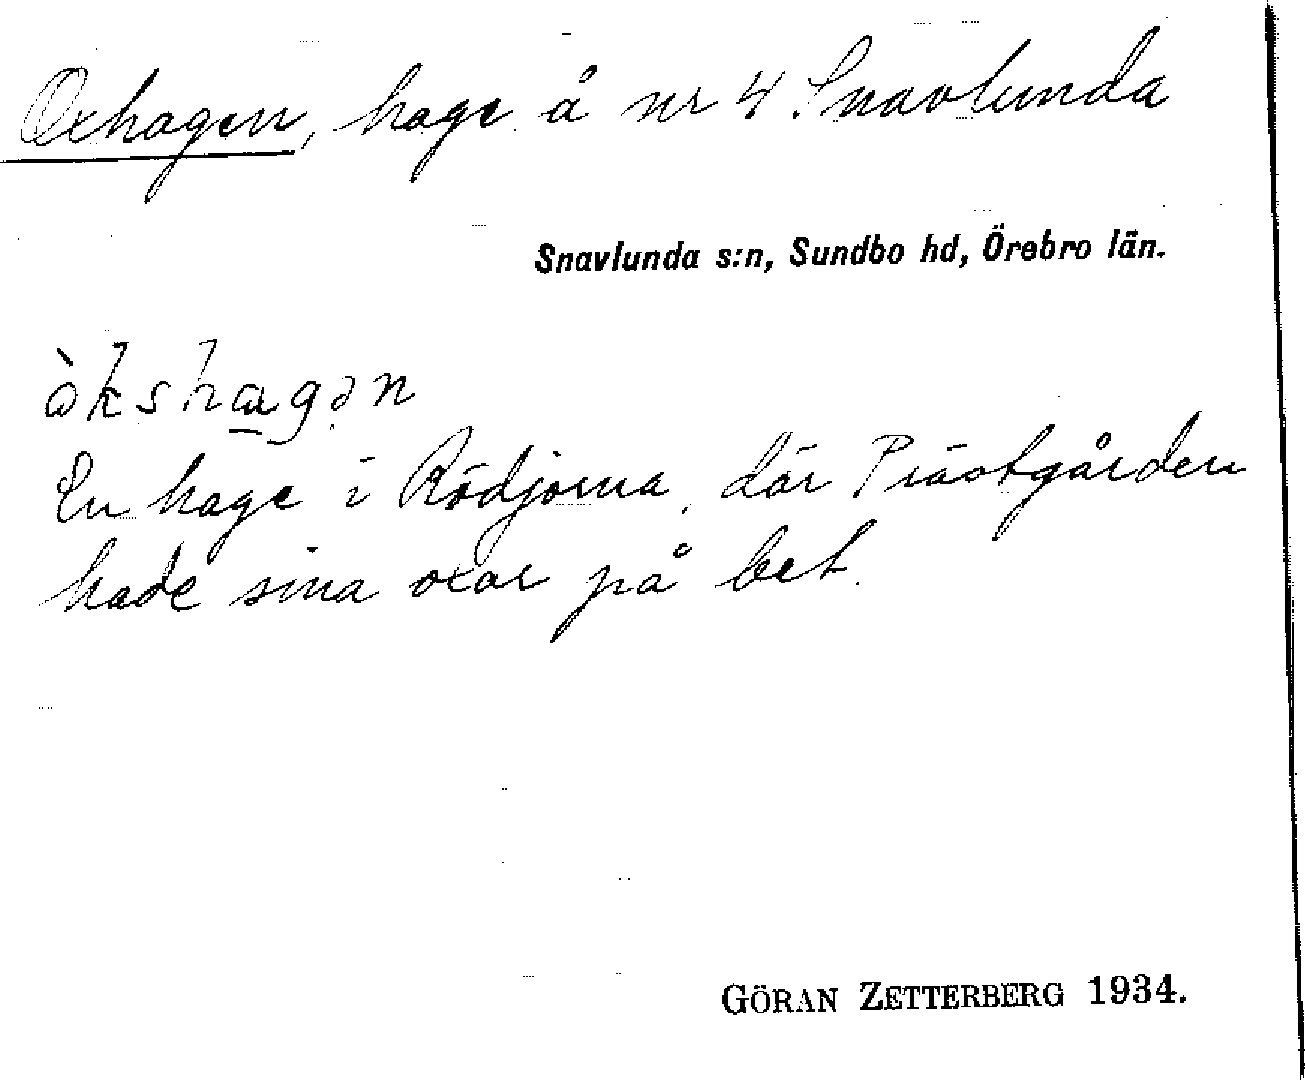 Oxhagen, hage å nr 4 Snavlunda
Snavlunda s:n, Sundbo hd, Örebro län.
ò̱kshagən
En hage i Rödjorna, där Prästgården
hade sina oxar på bet.
GÖRAN ZETTERBERG 1934.